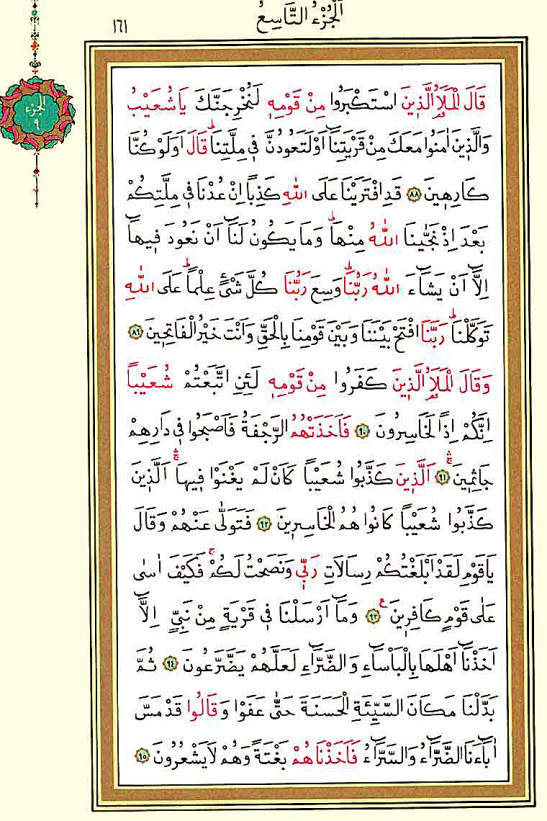 اَلْجُزْءُ التَّاسِعُ
١٦١
الجزء
٩
قَالَ الْمَلَاُ الَّذٖينَ اسْتَكْبَرُوا مِنْ قَوْمِهٖ لَنُخْرِجَنَّكَ يَا شُعَيْبُ
وَالَّذٖينَ اٰمَنُوا مَعَكَ مِنْ قَرْيَتِنَٓا اَوْ لَتَعُودُنَّ فٖى مِلَّتِنَاؕ قَالَ اَوَلَوْ كُنَّا
كَارِهٖينَ ﴿٨٨﴾ قَدِ افْتَرَيْنَا عَلَى اللّٰهِ كَذِباً اِنْ عُدْنَا فٖى مِلَّتِكُمْ
بَعْدَ اِذْ نَجّٰينَا اللّٰهُ مِنْهَاؕ وَمَا يَكُونُ لَنَٓا اَنْ نَعُودَ فٖيهَٓا
اِلَّٓا اَنْ يَشَٓاءَ اللّٰهُ رَبُّنَاؕ وَسِعَ رَبُّنَا كُلَّ شَیْءٍ عِلْماًؕ عَلَى اللّٰهِ
تَوَكَّلْنَاؕ رَبَّنَا افْتَحْ بَيْنَنَا وَبَيْنَ قَوْمِنَا بِالْحَقِّ وَاَنْتَ خَيْرُ الْفَاتِحٖينَ ﴿٨٩﴾
وَقَالَ الْمَلَاُ الَّذٖينَ كَفَرُوا مِنْ قَوْمِهٖ لَئِنِ اتَّبَعْتُمْ شُعَيْباً
اِنَّكُمْ اِذاً لَخَاسِرُونَ ﴿٩٠﴾ فَاَخَذَتْهُمُ الرَّجْفَةُ فَاَصْبَحُوا فٖى دَارِهِمْ
جَاثِمٖينَۚۛ ﴿٩١﴾ اَلَّذٖينَ كَذَّبُوا شُعَيْباً كَاَنْ لَمْ يَغْنَوْا فٖيهَاۚۛ اَلَّذٖينَ
كَذَّبُوا شُعَيْباً كَانُوا هُمُ الْخَاسِرٖينَ ﴿٩٢﴾ فَتَوَلّٰى عَنْهُمْ وَقَالَ
يَا قَوْمِ لَقَدْ اَبْلَغْتُكُمْ رِسَالَاتِ رَبّٖى وَنَصَحْتُ لَكُمْۚ فَكَيْفَ اٰسٰى
عَلٰى قَوْمٍ كَافِرٖينَ ﴿٩٣﴾ وَمَٓا اَرْسَلْنَا فٖى قَرْيَةٍ مِنْ نَبِىٍّ اِلَّٓا
اَخَذْنَٓا اَهْلَهَا بِالْبَاْسَٓاءِ وَالضَّرَّٓاءِ لَعَلَّهُمْ يَضَّرَّعُونَ ﴿٩٤﴾ ثُمَّ
بَدَّلْنَا مَكَانَ السَّيِّئَةِ الْحَسَنَةَ حَتّٰى عَفَوْا وَقَالُوا قَدْ مَسَّ
اٰبَٓاءَنَا الضَّرَّٓاءُ وَالسَّرَّٓاءُ فَاَخَذْنَاهُمْ بَغْتَةً وَهُمْ لَا يَشْعُرُونَ ﴿٩٥﴾